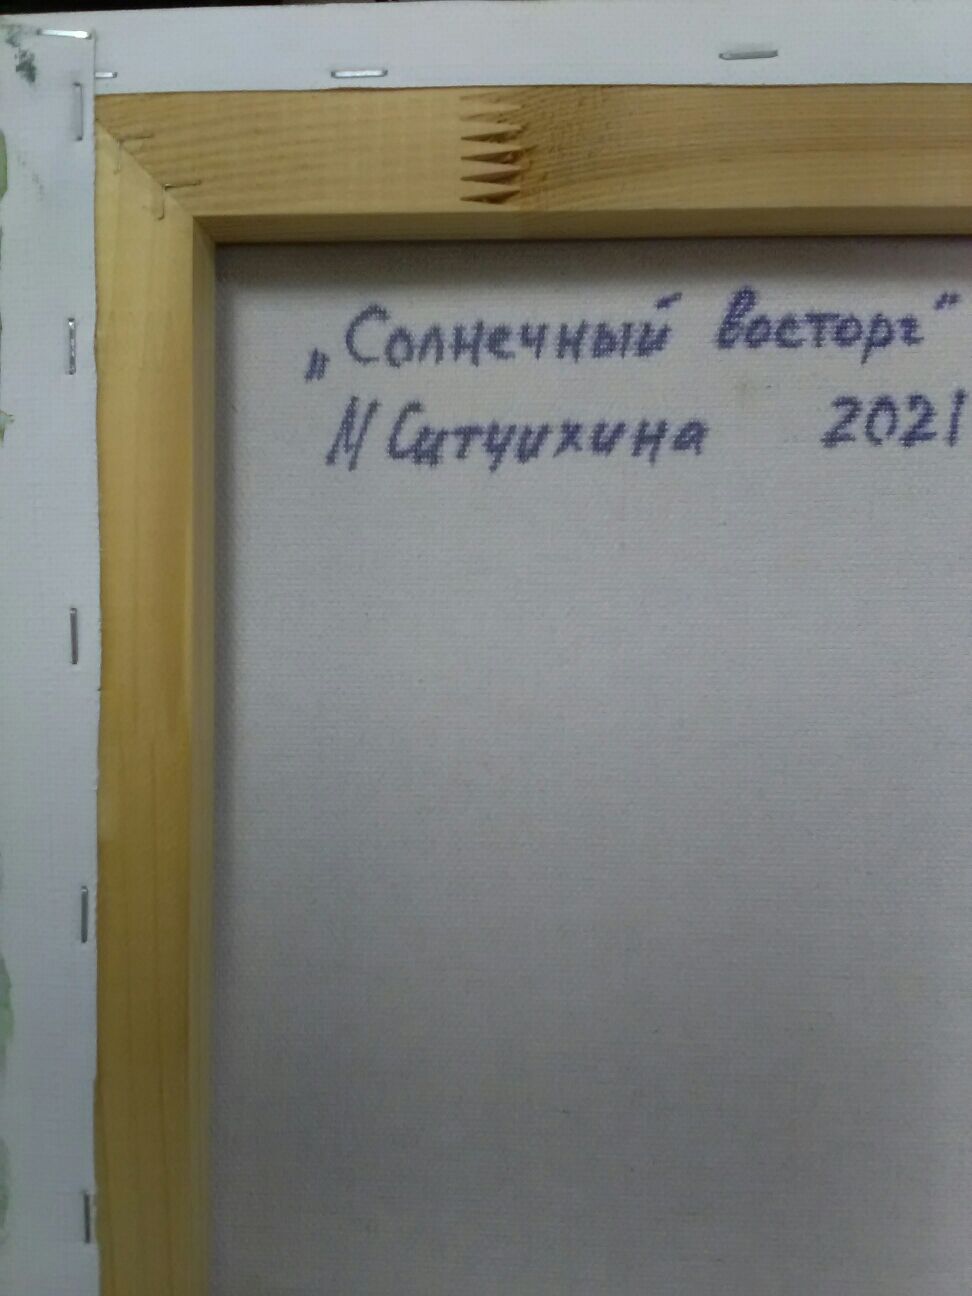 „Солнечный восторг"
М Ситчихина 2021